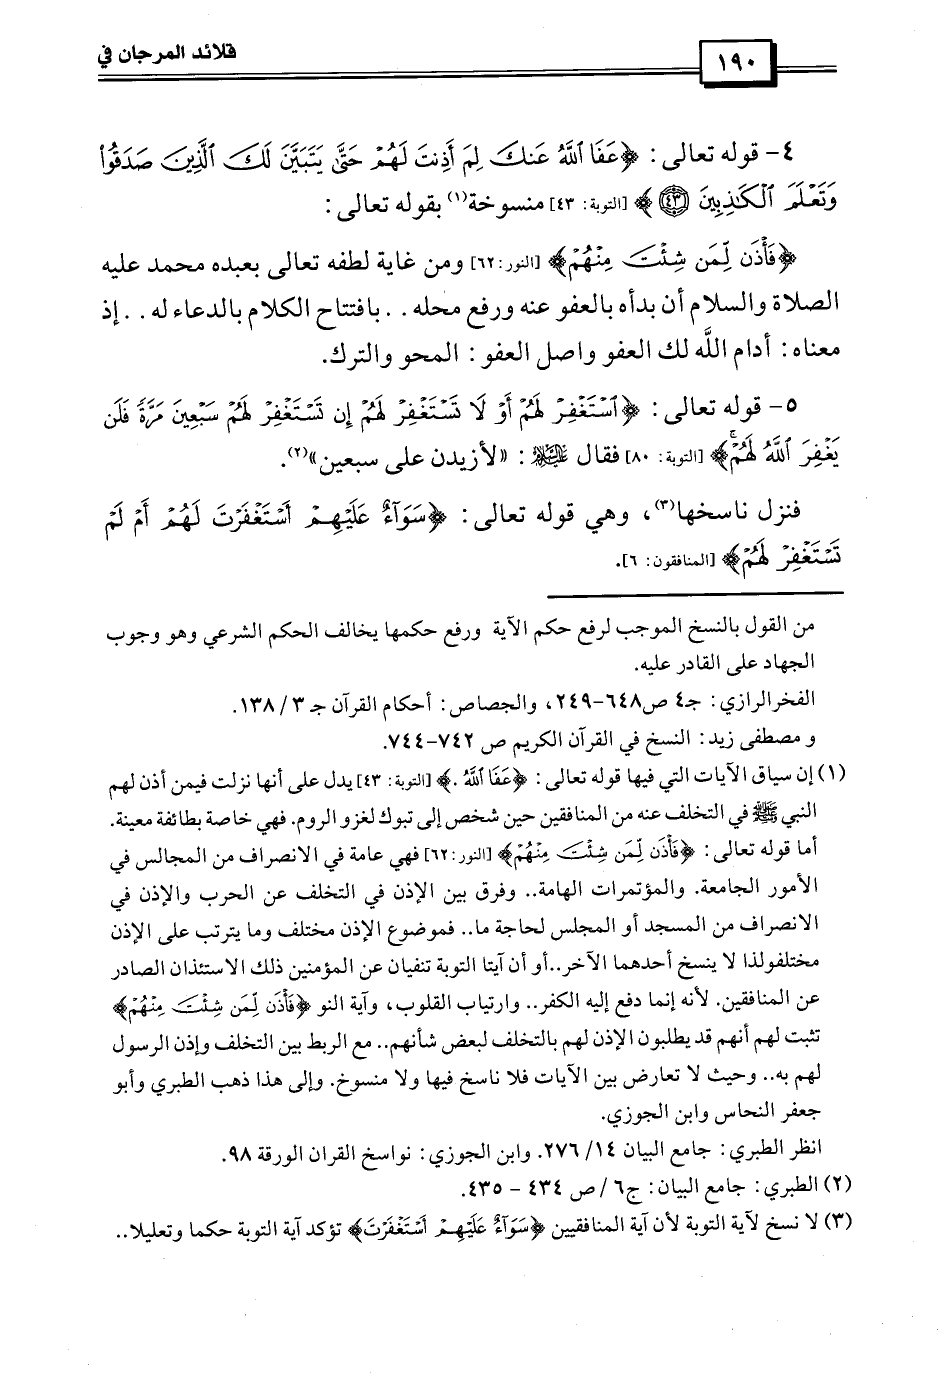 قلائد المرجان في
١٩٠
٤- قوله تعالى: ﴿عَفَا ٱللَّهُ عَنكَ لِمَ أَذِنتَ لَهُمْ حَتَّىٰ يَتَبَيَّنَ لَكَ ٱلَّذِينَ صَدَقُوا۟
وَتَعْلَمَ ٱلْكَـٰذِبِينَ ٤٣﴾ [التوبة: ٤٣] منسوخة(١) بقوله تعالى:
﴿فَأْذَن لِّمَن شِئْتَ مِنْهُمْ﴾ [النور:٦٢] ومن غاية لطفه تعالى بعبده محمد عليه
الصلاة والسلام أن بدأه بالعفو عنه ورفع محله.. بافتتاح الكلام بالدعاء له.. إذ
معناه: أدام اللَّه لك العفو واصل العفو: المحو والترك.
٥- قوله تعالى: ﴿ٱسْتَغْفِرْ لَهُمْ أَوْ لَا تَسْتَغْفِرْ لَهُمْ إِن تَسْتَغْفِرْ لَهُمْ سَبْعِينَ مَرَّةً فَلَن
يَغْفِرَ ٱللَّهُ لَهُمْ ۚ﴾ [التوبة: ٨٠] فقال ﷺ: «لأزيدن على سبعين»(٢).
فنزل ناسخها(٣)، وهي قوله تعالى: ﴿سَوَآءٌ عَلَيْهِمْ أَسْتَغْفَرْتَ لَهُمْ أَمْ لَمْ
تَسْتَغْفِرْ لَهُمْ﴾ [المنافقون: ٦].
من القول بالنسخ الموجب لرفع حكم الآية ورفع حكمها يخالف الحكم الشرعي وهو وجوب
الجهاد على القادر عليه.
الفخرالرازي: جـ٤ ص٦٤٨-٢٤٩، والجصاص: أحكام القرآن جـ ٣/ ١٣٨.
و مصطفى زيد: النسخ في القرآن الكريم ص ٧٤٢-٧٤٤.
(١) إن سياق الآيات التي فيها قوله تعالى: ﴿عَفَا ٱللَّهُ.﴾ [التوبة: ٤٣] يدل على أنها نزلت فيمن أذن لهم
النبي ﷺ في التخلف عنه من المنافقين حين شخص إلى تبوك لغزو الروم. فهي خاصة بطائفة معينة.
أما قوله تعالى: ﴿فَأْذَن لِّمَن شِئْتَ مِنْهُمْ﴾ [النور:٦٢] فهي عامة في الانصراف من المجالس في
الأمور الجامعة. والمؤتمرات الهامة.. وفرق بين الإذن في التخلف عن الحرب والإذن في
الانصراف من المسجد أو المجلس لحاجة ما.. فموضوع الإذن مختلف وما يترتب على الإذن
مختلفولذا لا ينسخ أحدهما الآخر..أو أن آيتا التوبة تنفيان عن المؤمنين ذلك الاستئذان الصادر
عن المنافقين. لأنه إنما دفع إليه الكفر.. وارتياب القلوب، وآية النو ﴿فَأْذَن لِّمَن شِئْتَ مِنْهُمْ﴾
تثبت لهم أنهم قد يطلبون الإذن لهم بالتخلف لبعض شأنهم.. مع الربط بين التخلف وإذن الرسول
لهم به.. وحيث لا تعارض بين الآيات فلا ناسخ فيها ولا منسوخ. وإلى هذا ذهب الطبري وأبو
جعفر النحاس وابن الجوزي.
انظر الطبري: جامع البيان ١٤/ ٢٧٦. وابن الجوزي: نواسخ القران الورقة ٩٨.
(٢) الطبري: جامع البيان: ج٦/ ص ٤٣٤ - ٤٣٥.
(٣) لا نسخ لآية التوبة لأن آية المنافقيين ﴿سَوَآءٌ عَلَيْهِمْ أَسْتَغْفَرْتَ﴾ تؤكد آية التوبة حكما وتعليلا..